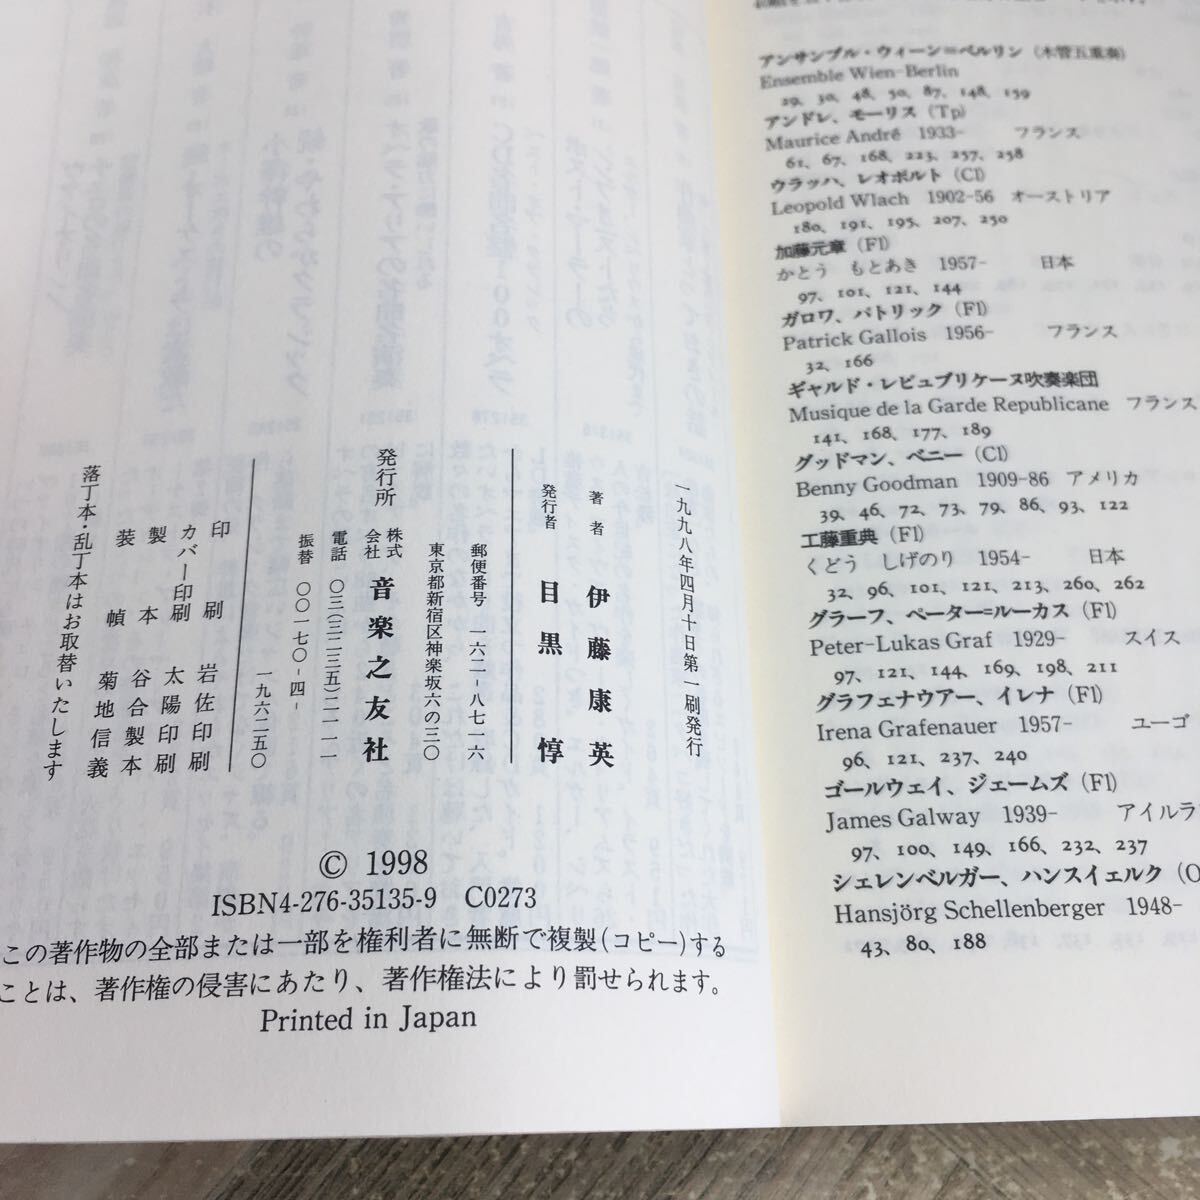 一九九八年四月十日第一刷発行
著者 伊藤康英
発行者 目黒惇
郵便番号 一六二-八七一六
東京都新宿区神楽坂六の三〇
発行所 株式会社 音楽之友社
電話 〇三(三二三五)二一一一
振替 〇〇一七〇-四-一九六二五〇
印刷 岩佐印刷
カバー印刷 太陽印刷
製本 谷合製本
装幀 菊地信義
落丁本・乱丁本はお取替いたします
© 1998
ISBN4-276-35135-9 C0273
この著作物の全部または一部を権利者に無断で複製(コピー)する
ことは、著作権の侵害にあたり、著作権法により罰せられます。
Printed in Japan
アンサンブル・ウィーン=ベルリン (木管五重奏)
Ensemble Wien-Berlin
29、30、48、50、87、148、159
アンドレ、モーリス (Tp)
Maurice André 1933- フランス
61、67、168、223、257、258
ウラッハ、レオポルト (Cl)
Leopold Wlach 1902-56 オーストリア
180、191、195、207、250
加藤元章 (Fl)
かとう もとあき 1957- 日本
97、101、121、144
ガロワ、パトリック (Fl)
Patrick Gallois 1956- フランス
32、166
ギャルド・レピュブリケーヌ吹奏楽団
Musique de la Garde Republicane フランス
141、168、177、189
グッドマン、ベニー (Cl)
Benny Goodman 1909-86 アメリカ
39、46、72、73、79、86、93、122
工藤重典 (Fl)
くどう しげのり 1954- 日本
32、96、101、121、213、260、262
グラーフ、ペーター=ルーカス (Fl)
Peter-Lukas Graf 1929- スイス
97、121、144、169、198、211
グラフェナウアー、イレナ (Fl)
Irena Grafenauer 1957- ユーゴ
96、121、237、240
ゴールウェイ、ジェームズ (Fl)
James Galway 1939- アイルラ
97、100、149、166、232、237
シェレンベルガー、ハンスイェルク (O
Hansjörg Schellenberger 1948-
43、80、188